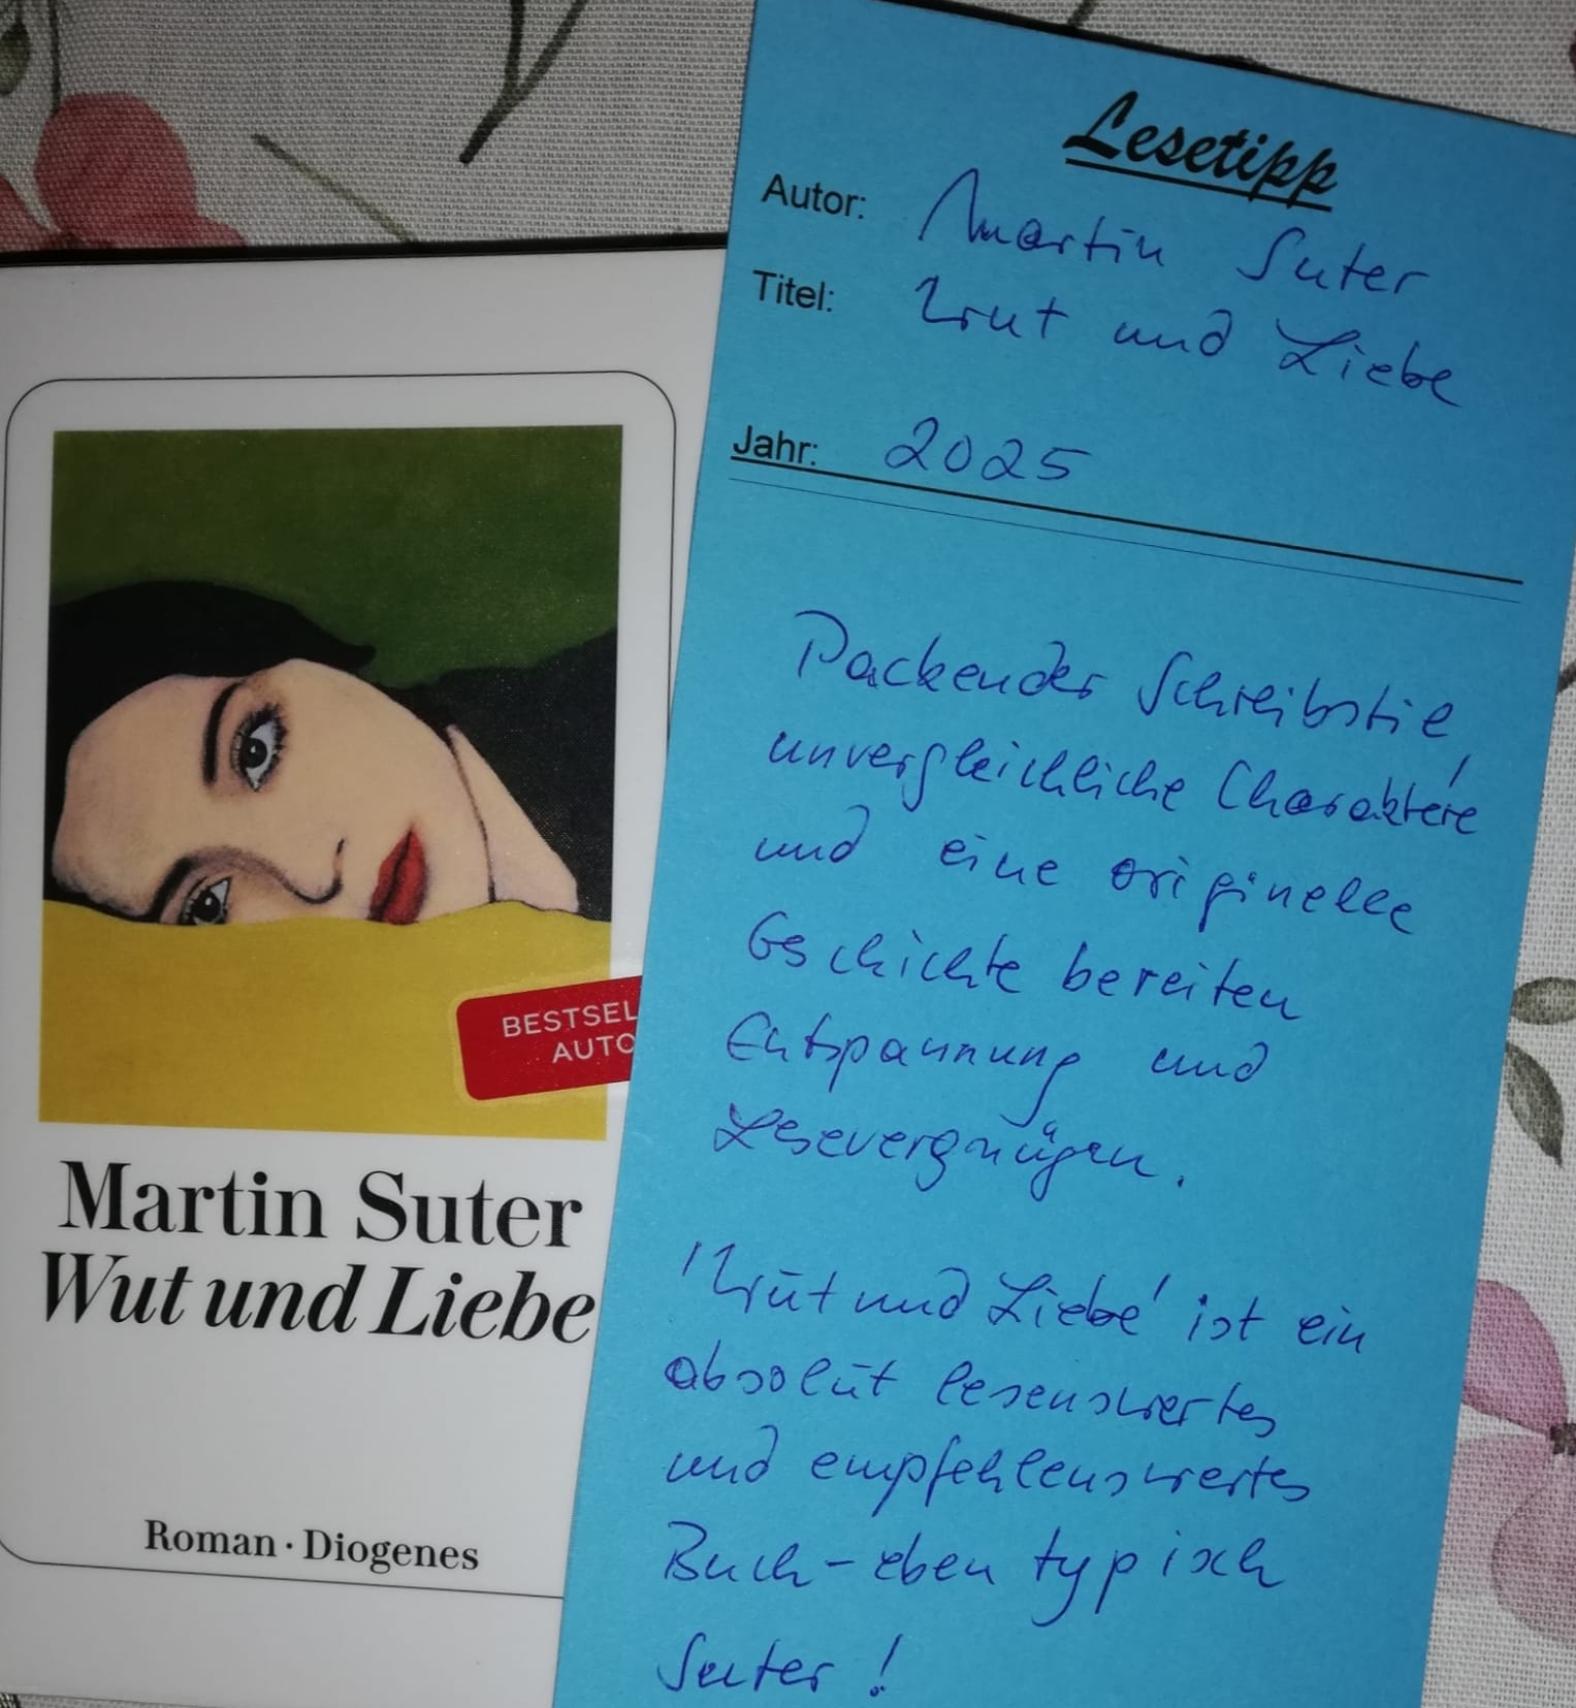 BESTSEL
AUTO
Martin Suter
Wut und Liebe
Roman · Diogenes
Lesetipp
Autor: Martin Suter
Titel: Wut und Liebe
Jahr: 2025
Packender Schreibstil,
unvergleichliche Charaktere
und eine originelle
Geschichte bereiten
Entspannung und
Lesevergnügen.
'Wut und Liebe' ist ein
absolut lesenswertes
und empfehlenswertes
Buch - eben typisch
Suter!